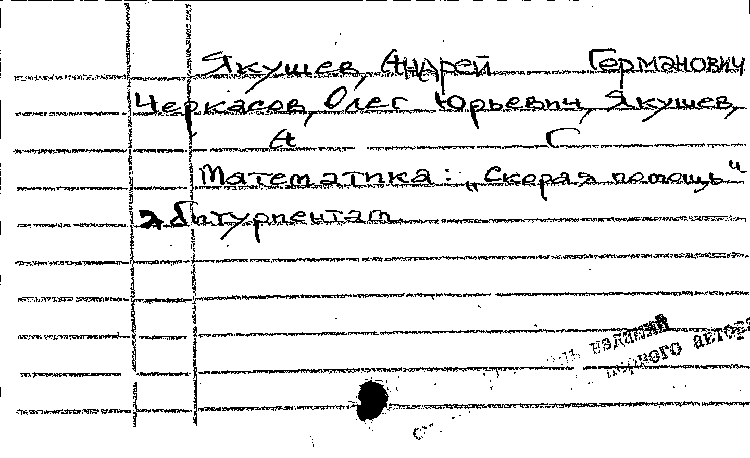 Якушев, Андрей Германович
Черкасов, Олег Юрьевич, Якушев,
А Г
Математика: „Скорая помощь"
абитурпентам
изданий
первого автора